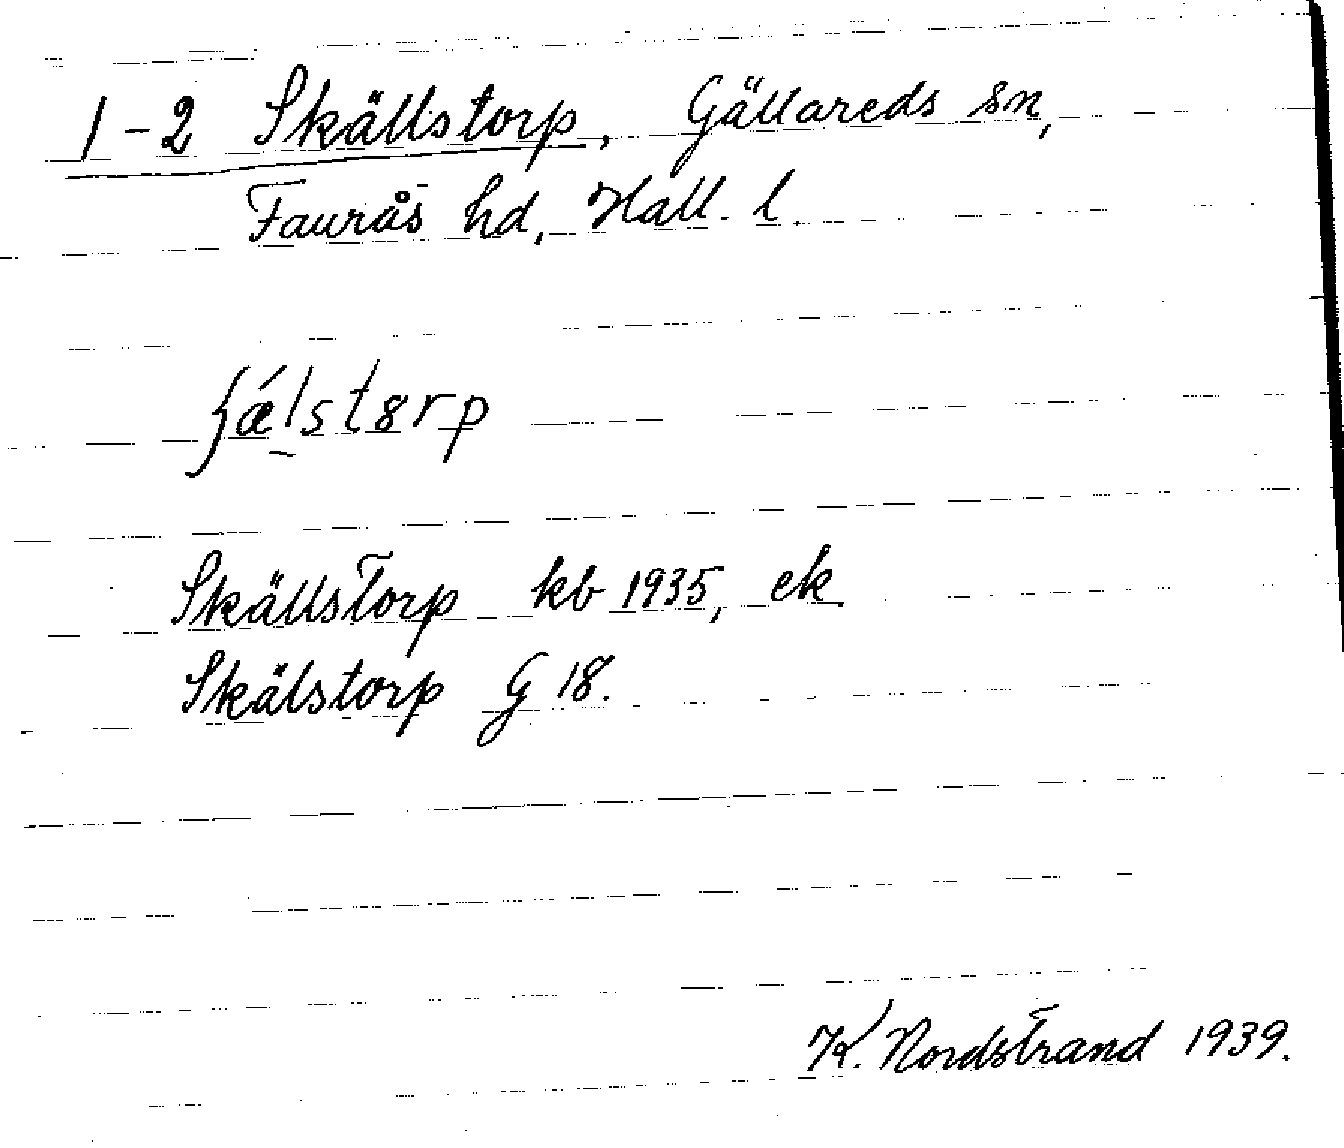 1-2 Skällstorp, Gällareds sn,
Faurås hd, Hall. l.
ʃǽlstɵrp
Skällstorp kb 1935, ek
Skälstorp G 18.
K. Nordstrand 1939.